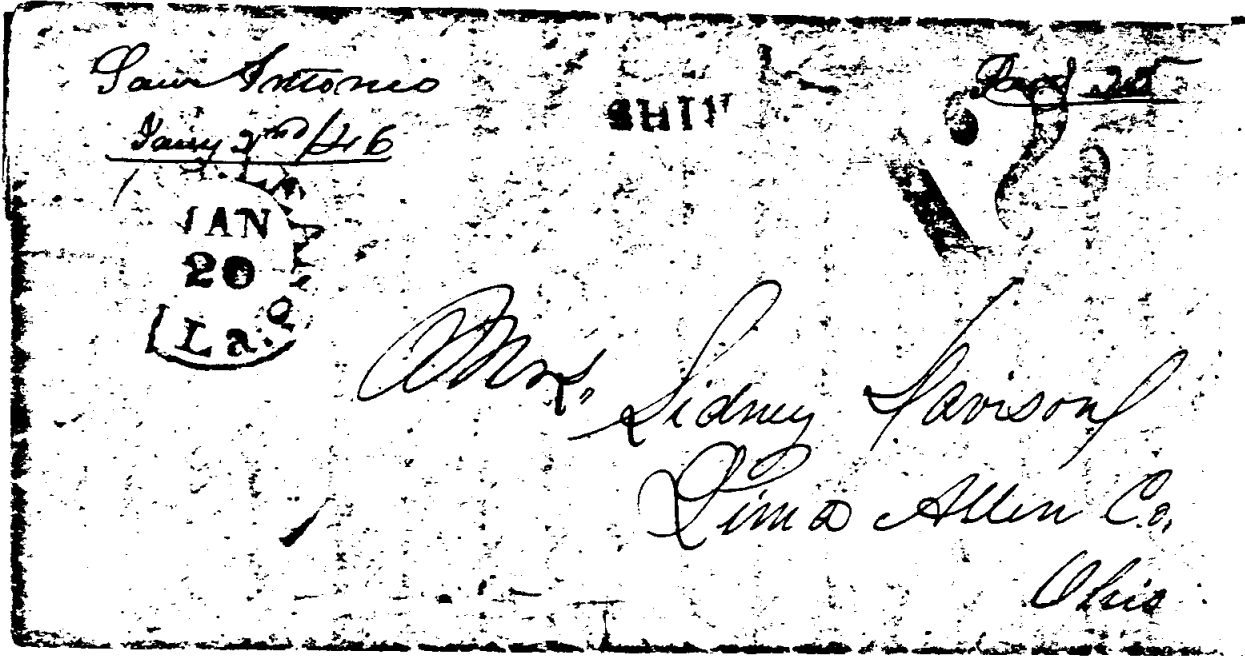 San Antonio
Jany 2nd/46
SHIP
Paid 25
12
JAN
20
La.
Mrs. Sidney Davison
Lima Allen Co.
Ohio